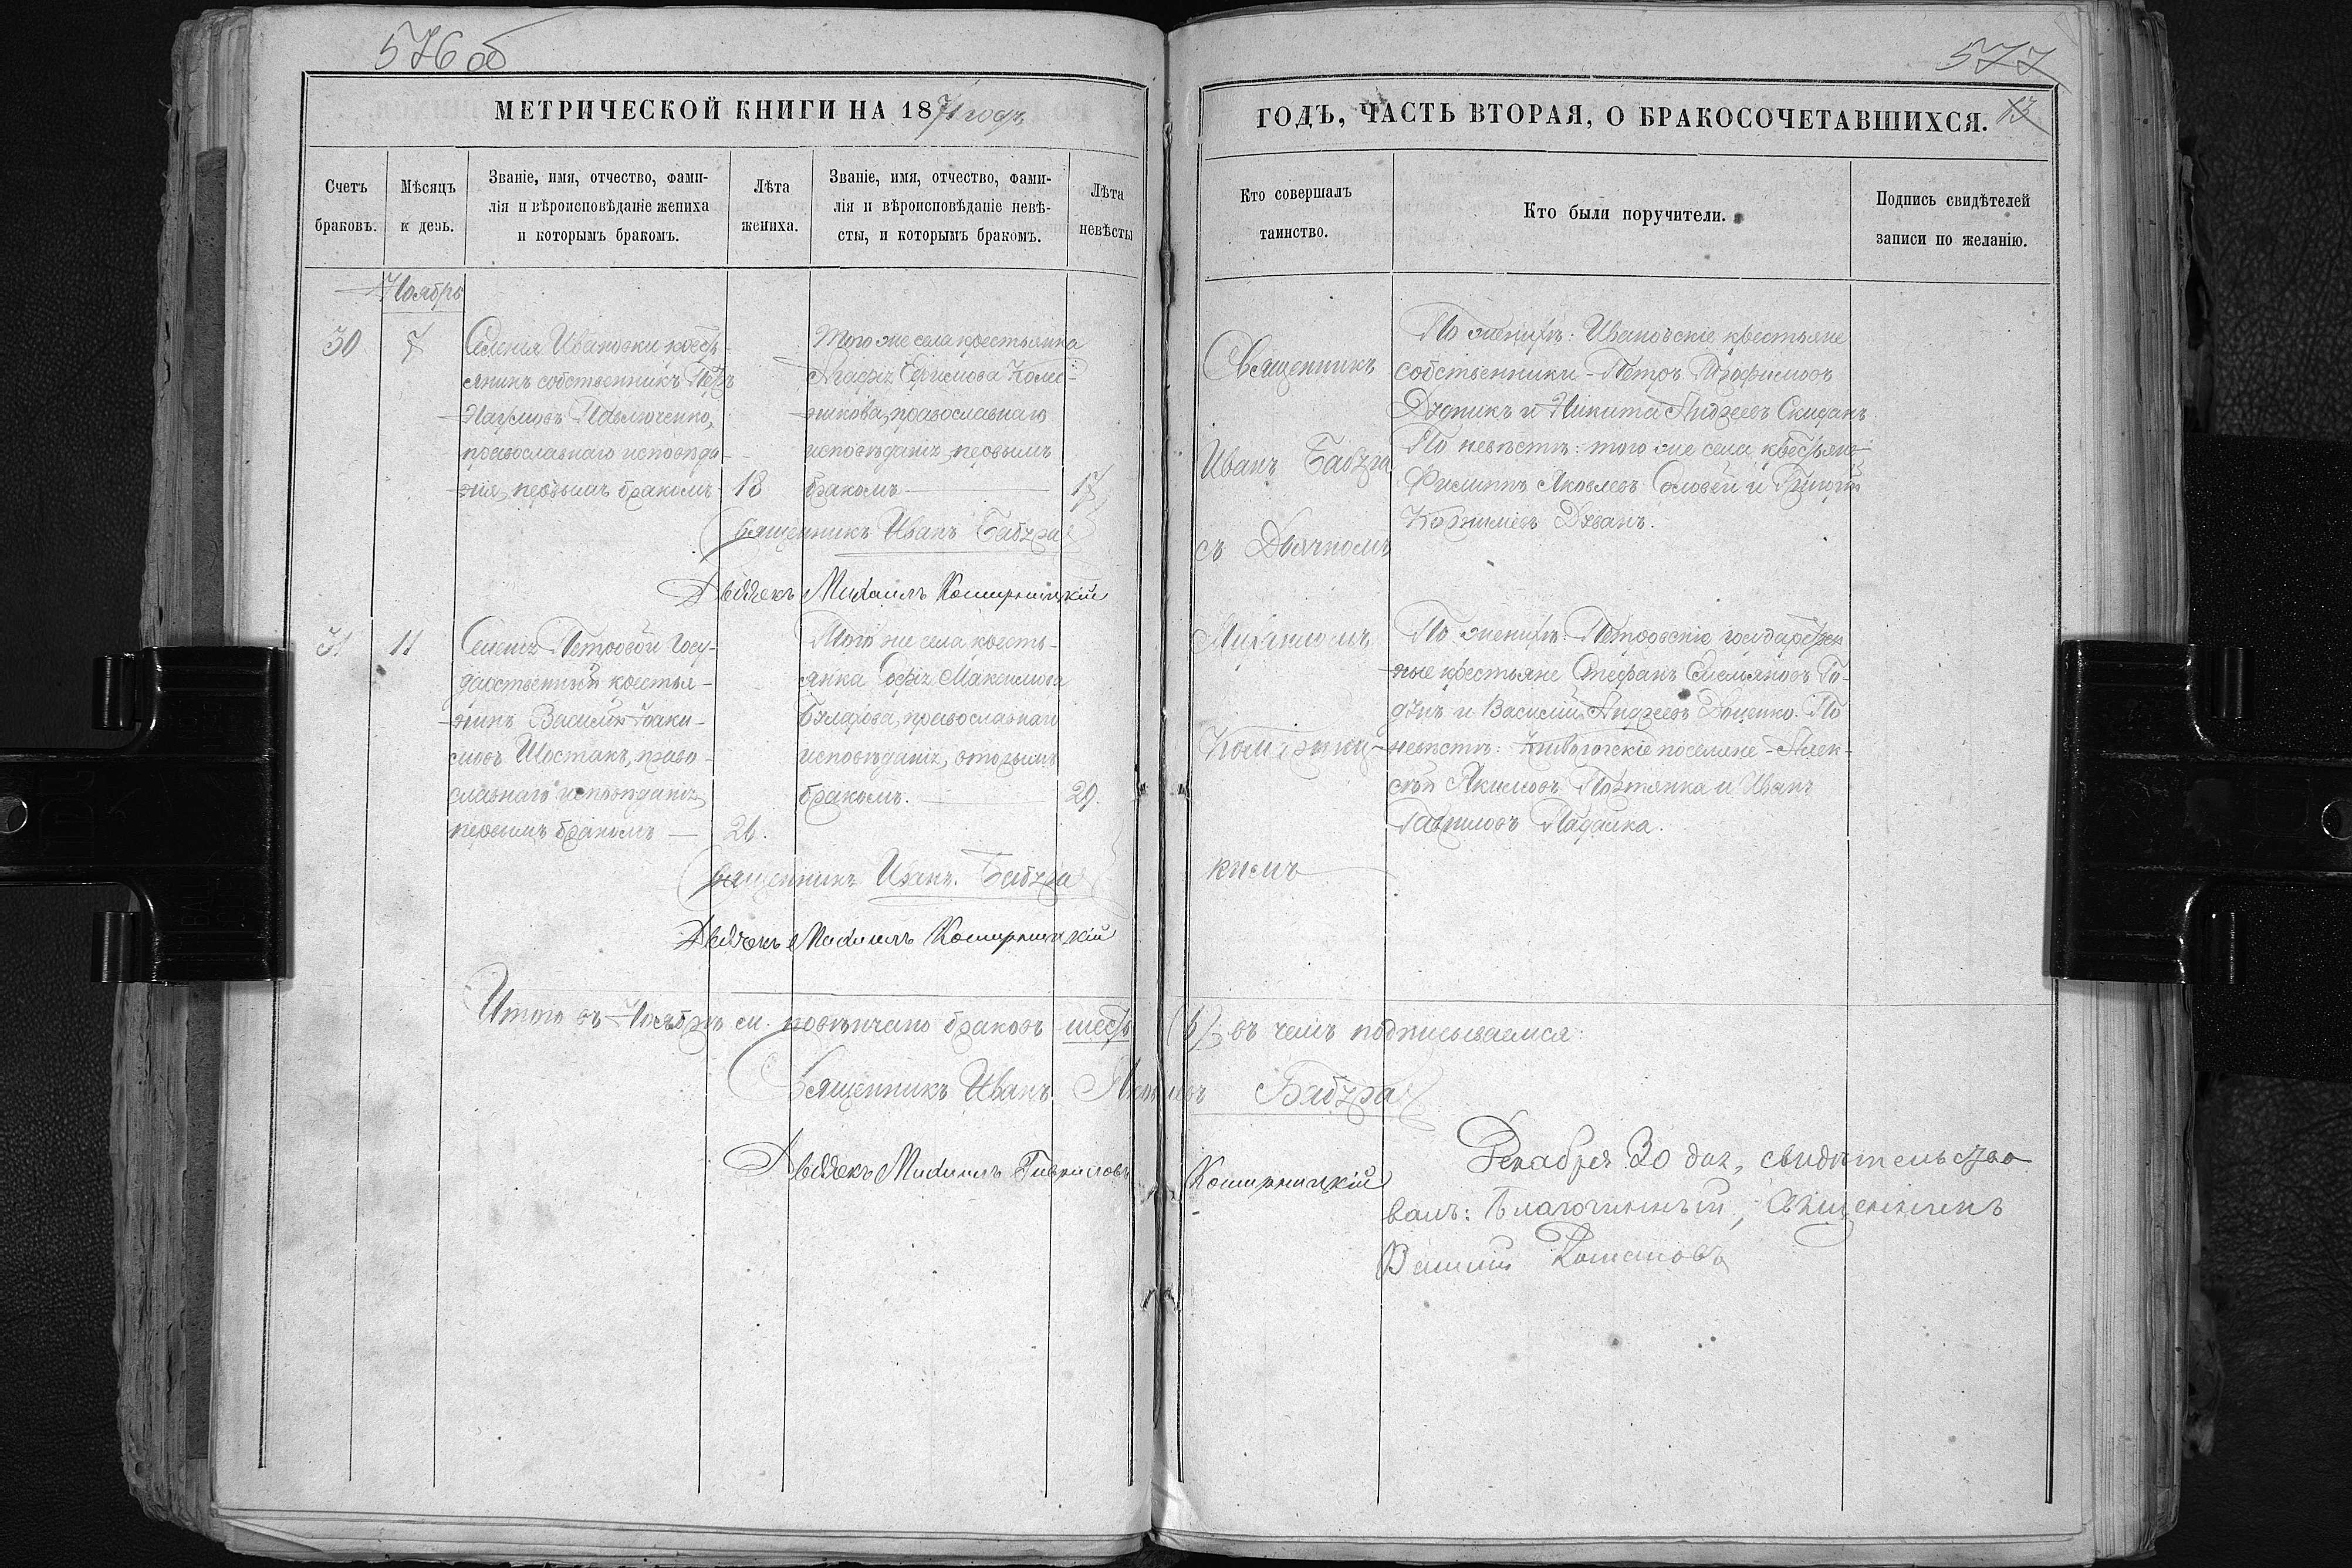 576 об
МЕТРИЧЕСКОЙ КНИГИ НА 1871 годъ
Счетъ браковъ.
Мѣсяцъ и день.
Званіе, имя, отчество, фами-
лія и вѣроисповѣданіе жениха
и которымъ бракомъ.
Лѣта жениха.
Званіе, имя, отчество, фами-
лія и вѣроисповѣданіе невѣ-
сты, и которымъ бракомъ.
Лѣта невѣсты
Ноябрь
30
7
Селенія Ивановки кресть-
янинъ собственникъ Петръ
Наумовъ Павлюченко,
православнаго исповѣда-
нія, первымъ бракомъ
18
Того же села крестьянка
Агафія Ефимова Колес-
никова, православнаго
исповѣданія, первымъ
бракомъ
17
Священникъ Иванъ Бабура
Дьячекъ Михаилъ Компрницкій
31
11
Селенія Петровой Госу-
дарственный крестья-
нинъ Василій Іоаки-
мовъ Шостакъ, право-
славнаго исповѣданія,
первымъ бракомъ
26.
Того же села кресть-
янка Софія Максимова
православнаго
исповѣданія, вторымъ
бракомъ.
29.
Священникъ Иванъ Бабура
Дьячекъ Михаилъ
Итого въ Ноябрѣ м. повѣнчано браковъ шесть
Священникъ Иванъ Яковлевъ
Дьячекъ Михаилъ Гавриловъ
577
ГОДЪ, ЧАСТЬ ВТОРАЯ, О БРАКОСОЧЕТАВШИХСЯ.
13
Кто совершалъ таинство.
Кто были поручители.
Подпись свидѣтелей
записи по желанію.
Священникъ
Иванъ Бабура
съ Дьячкомъ
кимъ
По женихѣ: Ивановскіе крестьяне
собственники - Петръ Трофимовъ
и Никита Андреевъ Скиданъ
По невѣстѣ: того же села крестьяне
Филиппъ Яковлевъ Соловей и Григорій
Корниліевъ
По женихѣ: Петровскіе государствен
ные крестьяне Стефанъ Емельяновъ Го-
и Василій Андреевъ Доценко. По
невѣстѣ: поселяне - Алек-
сѣй Акимовъ и Иванъ
Гавриловъ Падалка.
(6), въ чемъ подписываемся:
Бабура
Декабря 30 дня, свидѣтельство
валъ: Благочинный, Священникъ
Василій Романовъ